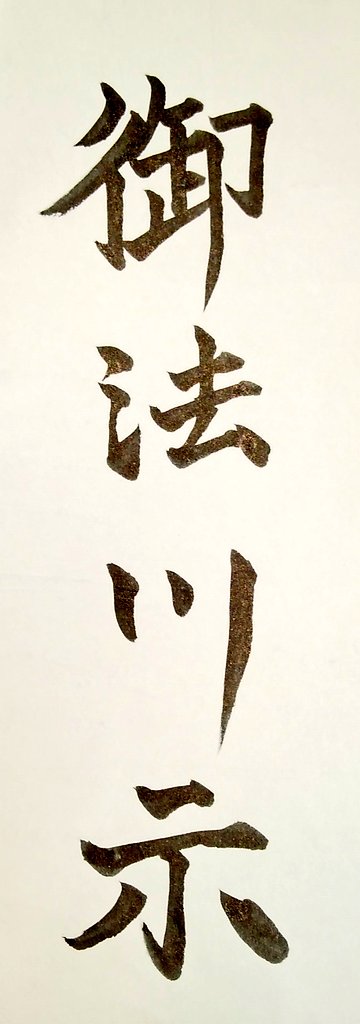 御法川示